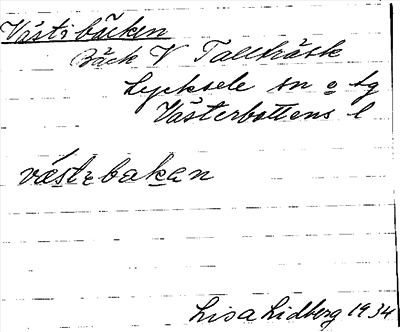 Västibäcken
Bäck V Tallträsk
Lycksele sn o tg
Västerbottens l
västɩbakan
Lisa Lidberg 1934